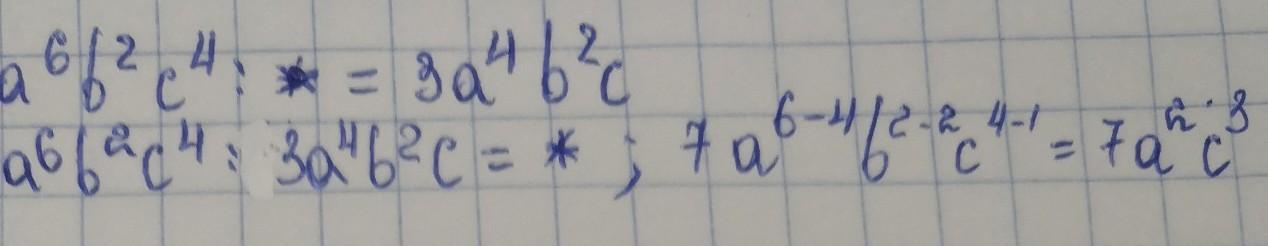 a⁶b²c⁴ : * = 3a⁴b²c
a⁶b²c⁴ : 3a⁴b²c = * ; 7a⁶⁻⁴b²⁻²c⁴⁻¹ = 7a²c³